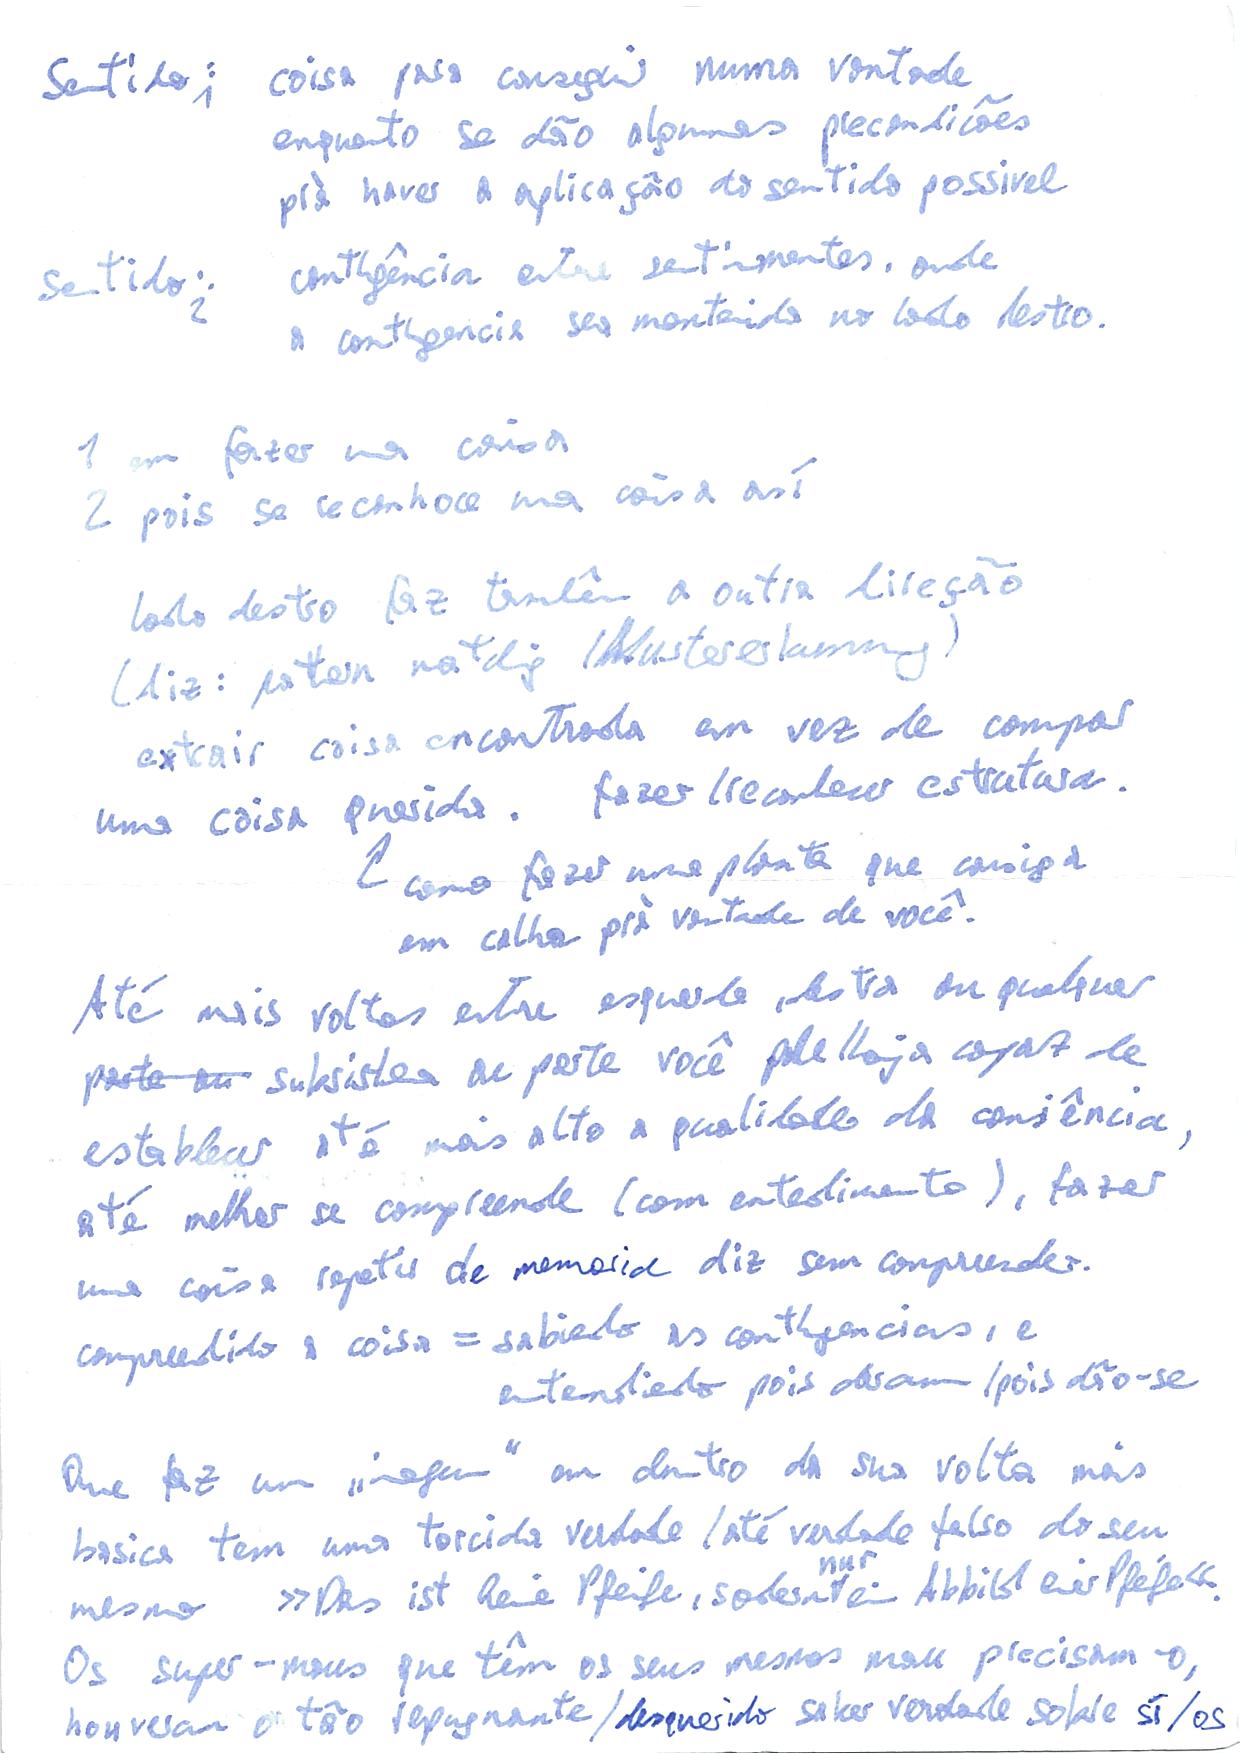 Sentido₁: coisa para conseguir numa vontade
enquanto se dão algumas precondições
prà haver a aplicação do sentido possivel
Sentido₂: contigência entre sentimentos, onde
a contigencia sea mantenida no lado destro.
1 em fazer uma coisa
2 pois se reconhoce uma coisa así
lado destro faz também a outra direção
(diz: pattern matchig (Mustererkennung)
extrair coisa encontrada em vez de compar
uma coisa querida. fazer/reconhecer estrutura.
como fazer uma planta que consiga
em calha prà vontade de você.
Até mais voltas entre esquerda, destra ou qualquer
parte ou subsistema ou parte você pode haja capaz de
establecer até mais alto a qualidade da consiência,
até melhor se compreende (com entedimento), fazer
uma coisa repetir de memoria diz sem compreender.
compreendido a coisa = sabiedo as contigencias, e
entendiedo pois obram / pois dão-se
Que faz um „imagem“ em dentro da sua volta mais
basica tem uma torcida verdade / até verdade falso do seu
mesmo »Das ist keine Pfeife, sodern nur ein Abbild einer Pfeife«.
Os super-maus que têm os seus mesmos mau precisam-o,
houveram o tão repugnante/desquerido saber verdade sobre sí/os